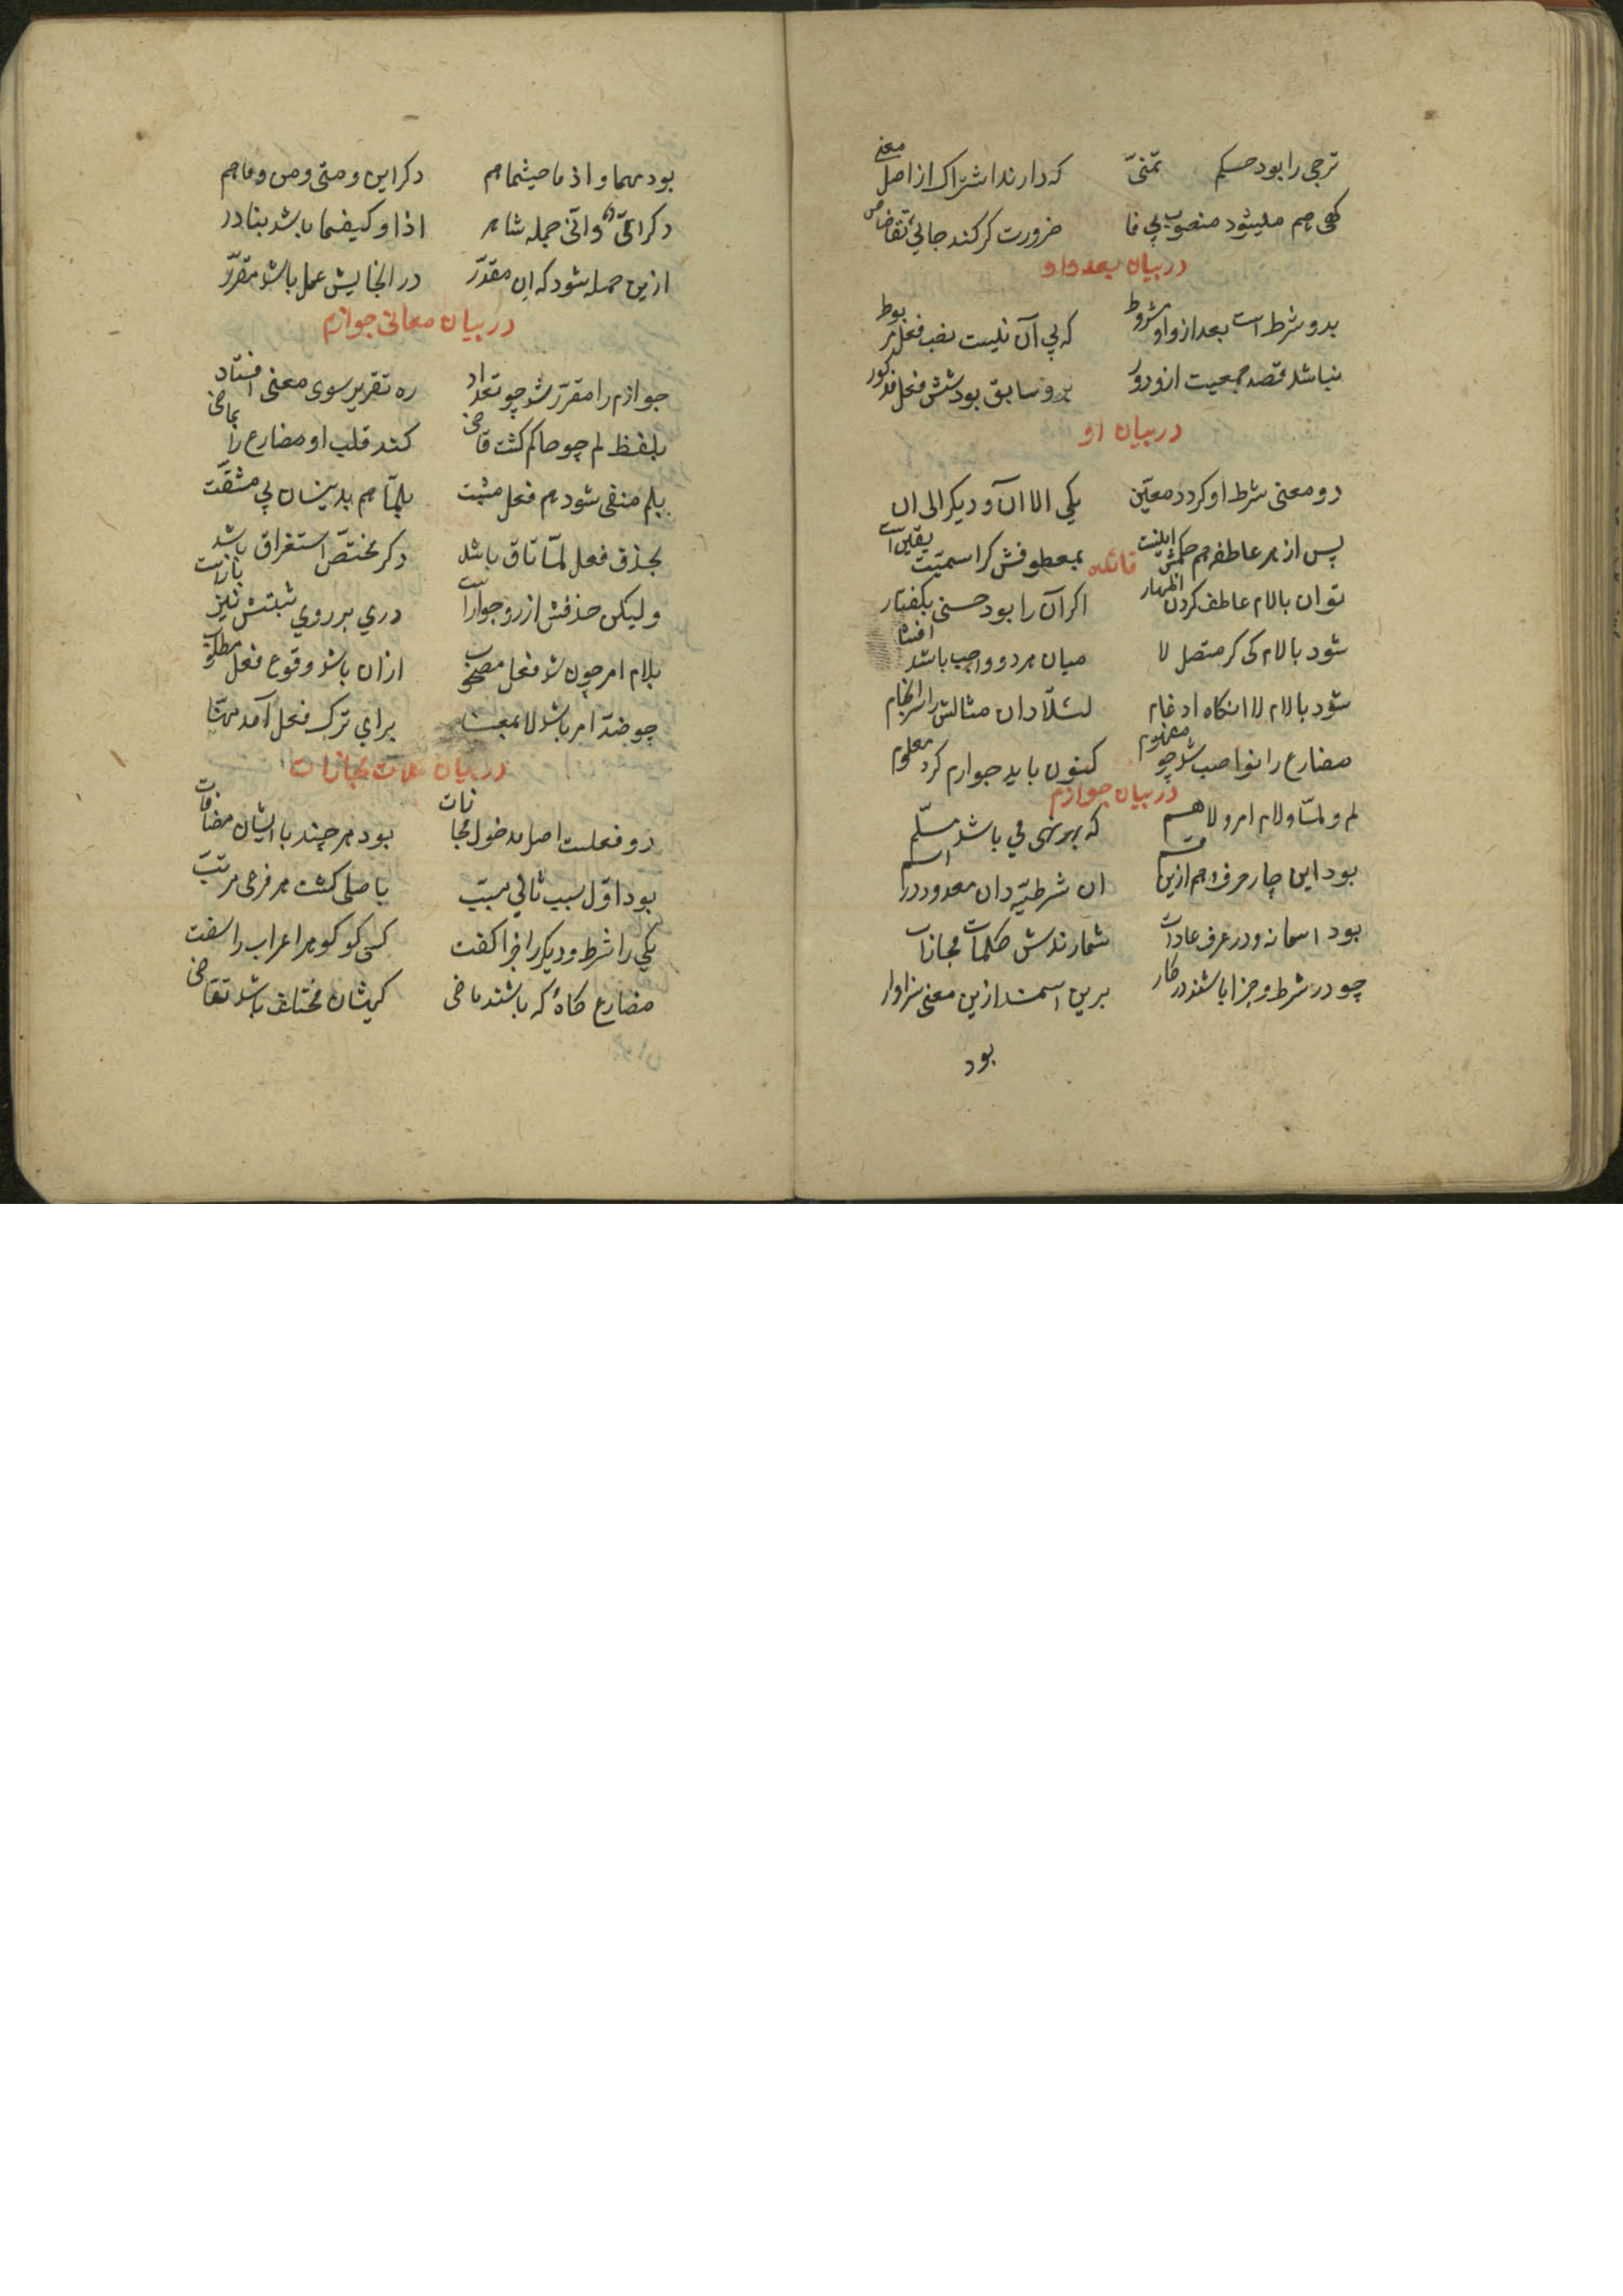 ترجی را بود حکم تمنّی که دارند اشتراک از اصل معنی
کهی هم میشود منصوب بی فا ضرورت کر کند جائی تقاضا
در بیان بعد واو
بدو شرط است بعد از واو مشروط که بی آن نیست نصب فعل مربوط
نباشد قصد جمعیت ازو دور برو سابق بود شش فعل مذکور
در بیان او
دو معنی شرط او کردد معیّن یکی الا ان و دیکر الی ان
پس از هر عاطفه هم حکمش اینست بمعطوفش کر اسمیّت یقین است
فائده
توان با لام عاطف کردن اظهار اکر آن را بود حسنی بکفتار
شود با لام کی کر متصل لا میان هر دو واجب باشد افشا
شود با لام لا انکاه ادغام لئلّا دان مثالش را سرانجام
مضارع را نواصب شد چو مفهوم کنون باید جوازم کرد معلوم
در بیان جوازم
لم و لمّا و لام امر و لا هم که بهر نهی می باشد مسلّم
بود این چار حرف و هم ازین قسم ان شرطیّه دان معدود در اسم
بود اسمانه و در عرف عادات شمارندش کلمات مجازات
چو در شرط و جزا باشند در کار برین اسمند ازین معنی سزاوار
بود
بود مهما و اذ ما حیثما هم دکر این و متی و من و ما هم
دکر ایّ و انّی جمله شاهر اذا و کیفما باشد بنادر
ازین جمله شود که ان مقدّر در انجایش عمل باشد مقرّر
در بیان معانی جوازم
جوازم را مقرّر شد چو تعداد ره تقریر سوی معنی افتاد
بلفظ لم چو حاکم کشت قاضی کند قلب او مضارع را بماضی
بلم منفی شود هم فعل مثبت بلمّا هم بدینسان بی مشقّت
بحذف فعل لمّا تاق باشد دکر مختصّ استغراق باشد
ولیکن حذفش از رو جوازاست دری بر روی مثبتش نیز بازاست
بلام امر چون شد فعل مصحوب ازان باشد وقوع فعل مطلوب
چو ضدّ امر باشد لا بمعنا برای ترک فعل آمد مهیّا
در بیان کلمات مجازات
دو فعلست اصل مدخول مجازات بود هر چند با ایشان مضافات
بود اوّل سبب ثانی مسبّب باصلی کشت هر فرعی مرتّب
یکی را شرط و دیکر را جزا کفت کسی کو کوهر اعراب را سفت
مضارع کاه که باشند ماضی کهیشان مختلف باشد تقاضی